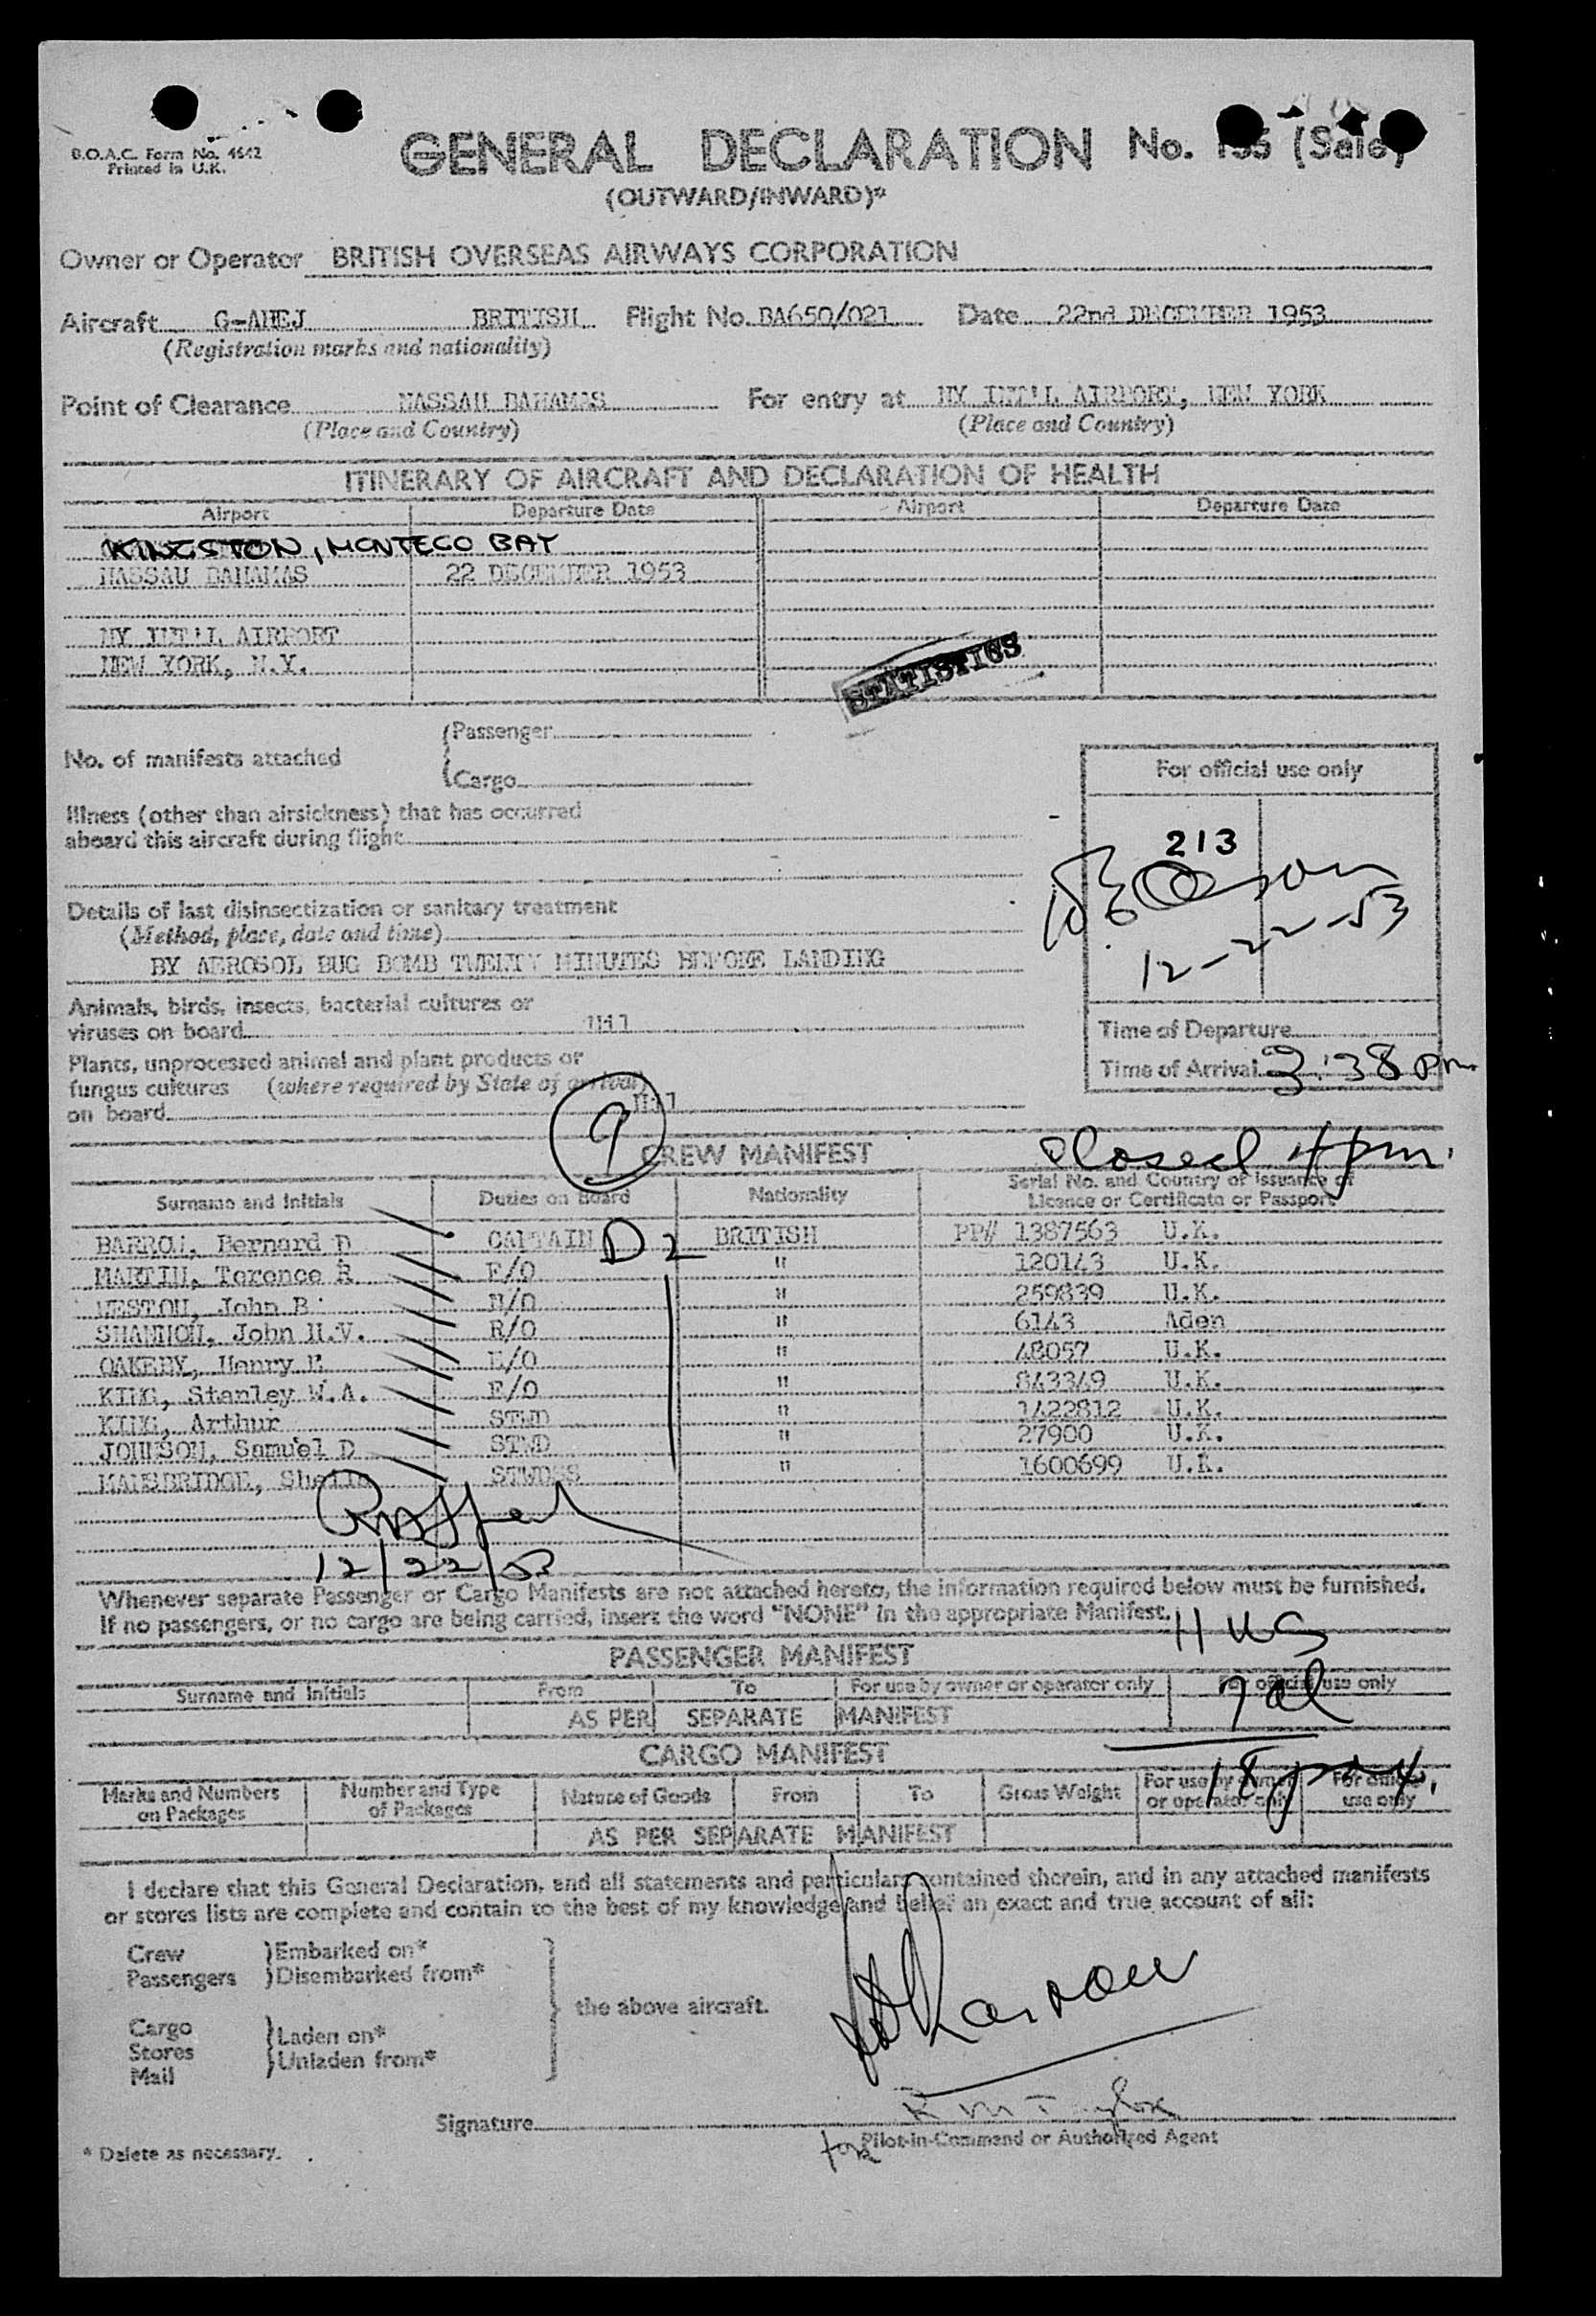 B.O.A.C. Form No. 4642
Printed in U.K.
GENERAL DECLARATION No.
(OUTWARD/INWARD)*
Owner or Operator BRITISH OVERSEAS AIRWAYS CORPORATION
Aircraft G-AHEJ BRITISH Flight No. BA650/021 Date 22nd DECEMBER 1953
(Registration marks and nationality)
Point of Clearance NASSAU BAHAMAS For entry at NY INT'L AIRPORT, NEW YORK
(Place and Country) (Place and Country)
ITINERARY OF AIRCRAFT AND DECLARATION OF HEALTH
Airport Departure Date Airport Departure Date
KINGSTON, MONTEGO BAY
NASSAU BAHAMAS 22 DECEMBER 1953
NY INT'L AIRPORT
NEW YORK, N.Y.
STATISTICS
No. of manifests attached {Passenger
{Cargo
For official use only
Illness (other than airsickness) that has occurred
aboard this aircraft during flight
213
12-22-53
Details of last disinsectization or sanitary treatment
(Method, place, date and time)
BY AEROSOL BUG BOMB TWENTY MINUTES BEFORE LANDING
Animals, birds, insects, bacterial cultures or
viruses on board Nil
Time of Departure
Time of Arrival 3:38 pm
Plants, unprocessed animal and plant products or
fungus cultures (where required by State of arrival)
on board Nil
9
CREW MANIFEST
Closed 4pm.
Surname and Initials Duties on Board Nationality Serial No. and Country of Issuance of Licence or Certificate or Passport
BARROW, Bernard D CAPTAIN D2 BRITISH PP# 1387563 U.K.
MARTIN, Terence R F/O " 120143 U.K.
WESTON, John B N/O " 259839 U.K.
SHANNON, John H.V. R/O " 6143 Aden
OAKEBY, Henry E/O " 48057 U.K.
KING, Stanley W.A. E/O " 843349 U.K.
KING, Arthur STWD " 1422812 U.K.
JOHNSON, Samuel D STWD " 27900 U.K.
MANSBRIDGE, Sheila STWDSS " 1600699 U.K.
12/22/53
Whenever separate Passenger or Cargo Manifests are not attached hereto, the information required below must be furnished.
If no passengers, or no cargo are being carried, insert the word "NONE" in the appropriate Manifest.
11 US
PASSENGER MANIFEST
Surname and Initials From To For use by owner or operator only For official use only
7 al
AS PER SEPARATE MANIFEST
CARGO MANIFEST
18
Marks and Numbers on Packages Number and Type of Packages Nature of Goods From To Gross Weight For use by owner or operator only For official use only
AS PER SEPARATE MANIFEST
I declare that this General Declaration, and all statements and particulars contained therein, and in any attached manifests
or stores lists are complete and contain to the best of my knowledge and belief an exact and true account of all:
Crew }Embarked on*
Passengers }Disembarked from*
the above aircraft.
Cargo }Laden on*
Stores }Unladen from*
Mail
Signature
for Pilot-in-Command or Authorized Agent
* Delete as necessary.